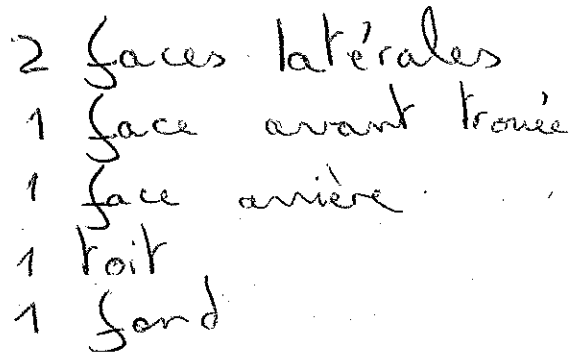 2 faces latérales
1 face avant trouée
1 face arrière
1 toit
1 fond